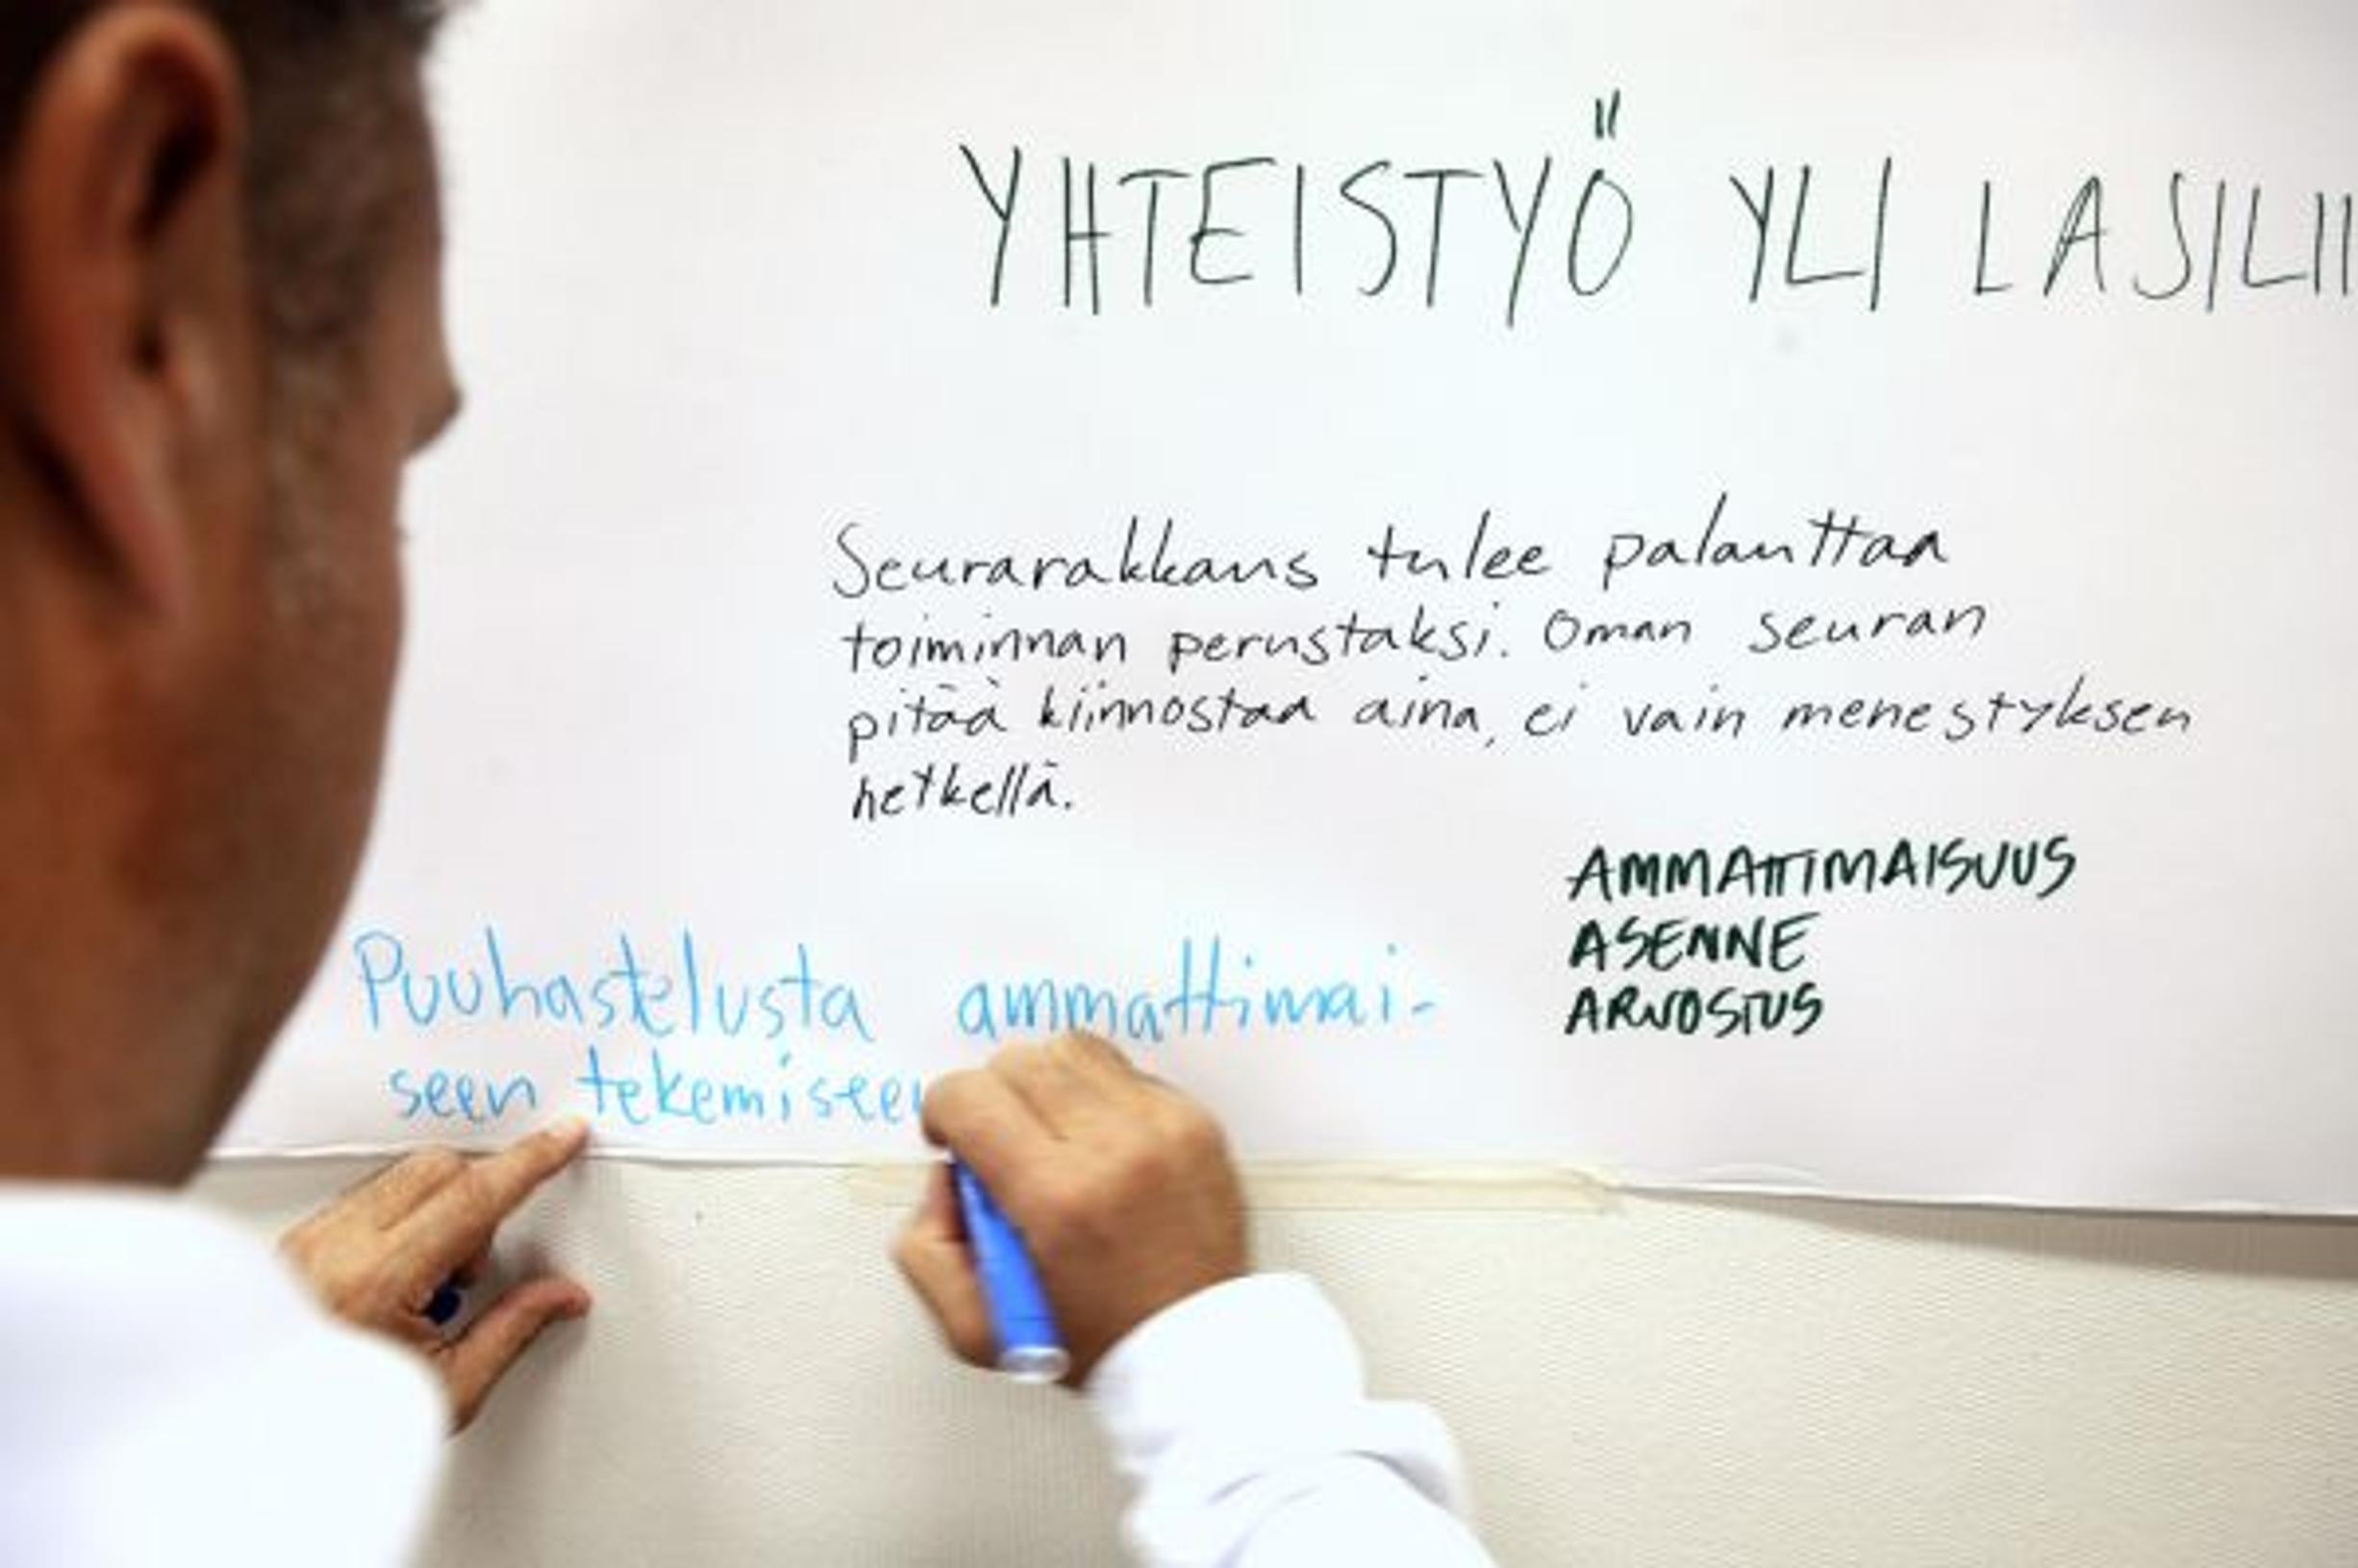 YHTEISTYÖ YLI LASILII
Seurarakkaus tulee palauttaa
toiminnan perustaksi. Oman seuran
pitää kiinnostaa aina, ei vain menestyksen
hetkellä.
AMMATTIMAISUUS
ASENNE
ARVOSTUS
Puuhastelusta ammattimai-
seen tekemiseen